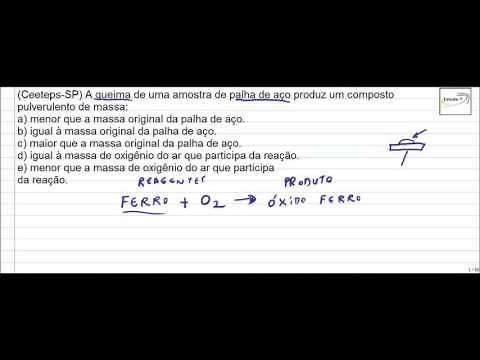 (Ceeteps-SP) A queima de uma amostra de palha de aço produz um composto
pulverulento de massa:
a) menor que a massa original da palha de aço.
b) igual à massa original da palha de aço.
c) maior que a massa original da palha de aço.
d) igual à massa de oxigênio do ar que participa da reação.
e) menor que a massa de oxigênio do ar que participa
da reação.
REAGENTES PRODUTO
FERRO + O2 → ÓXIDO FERRO